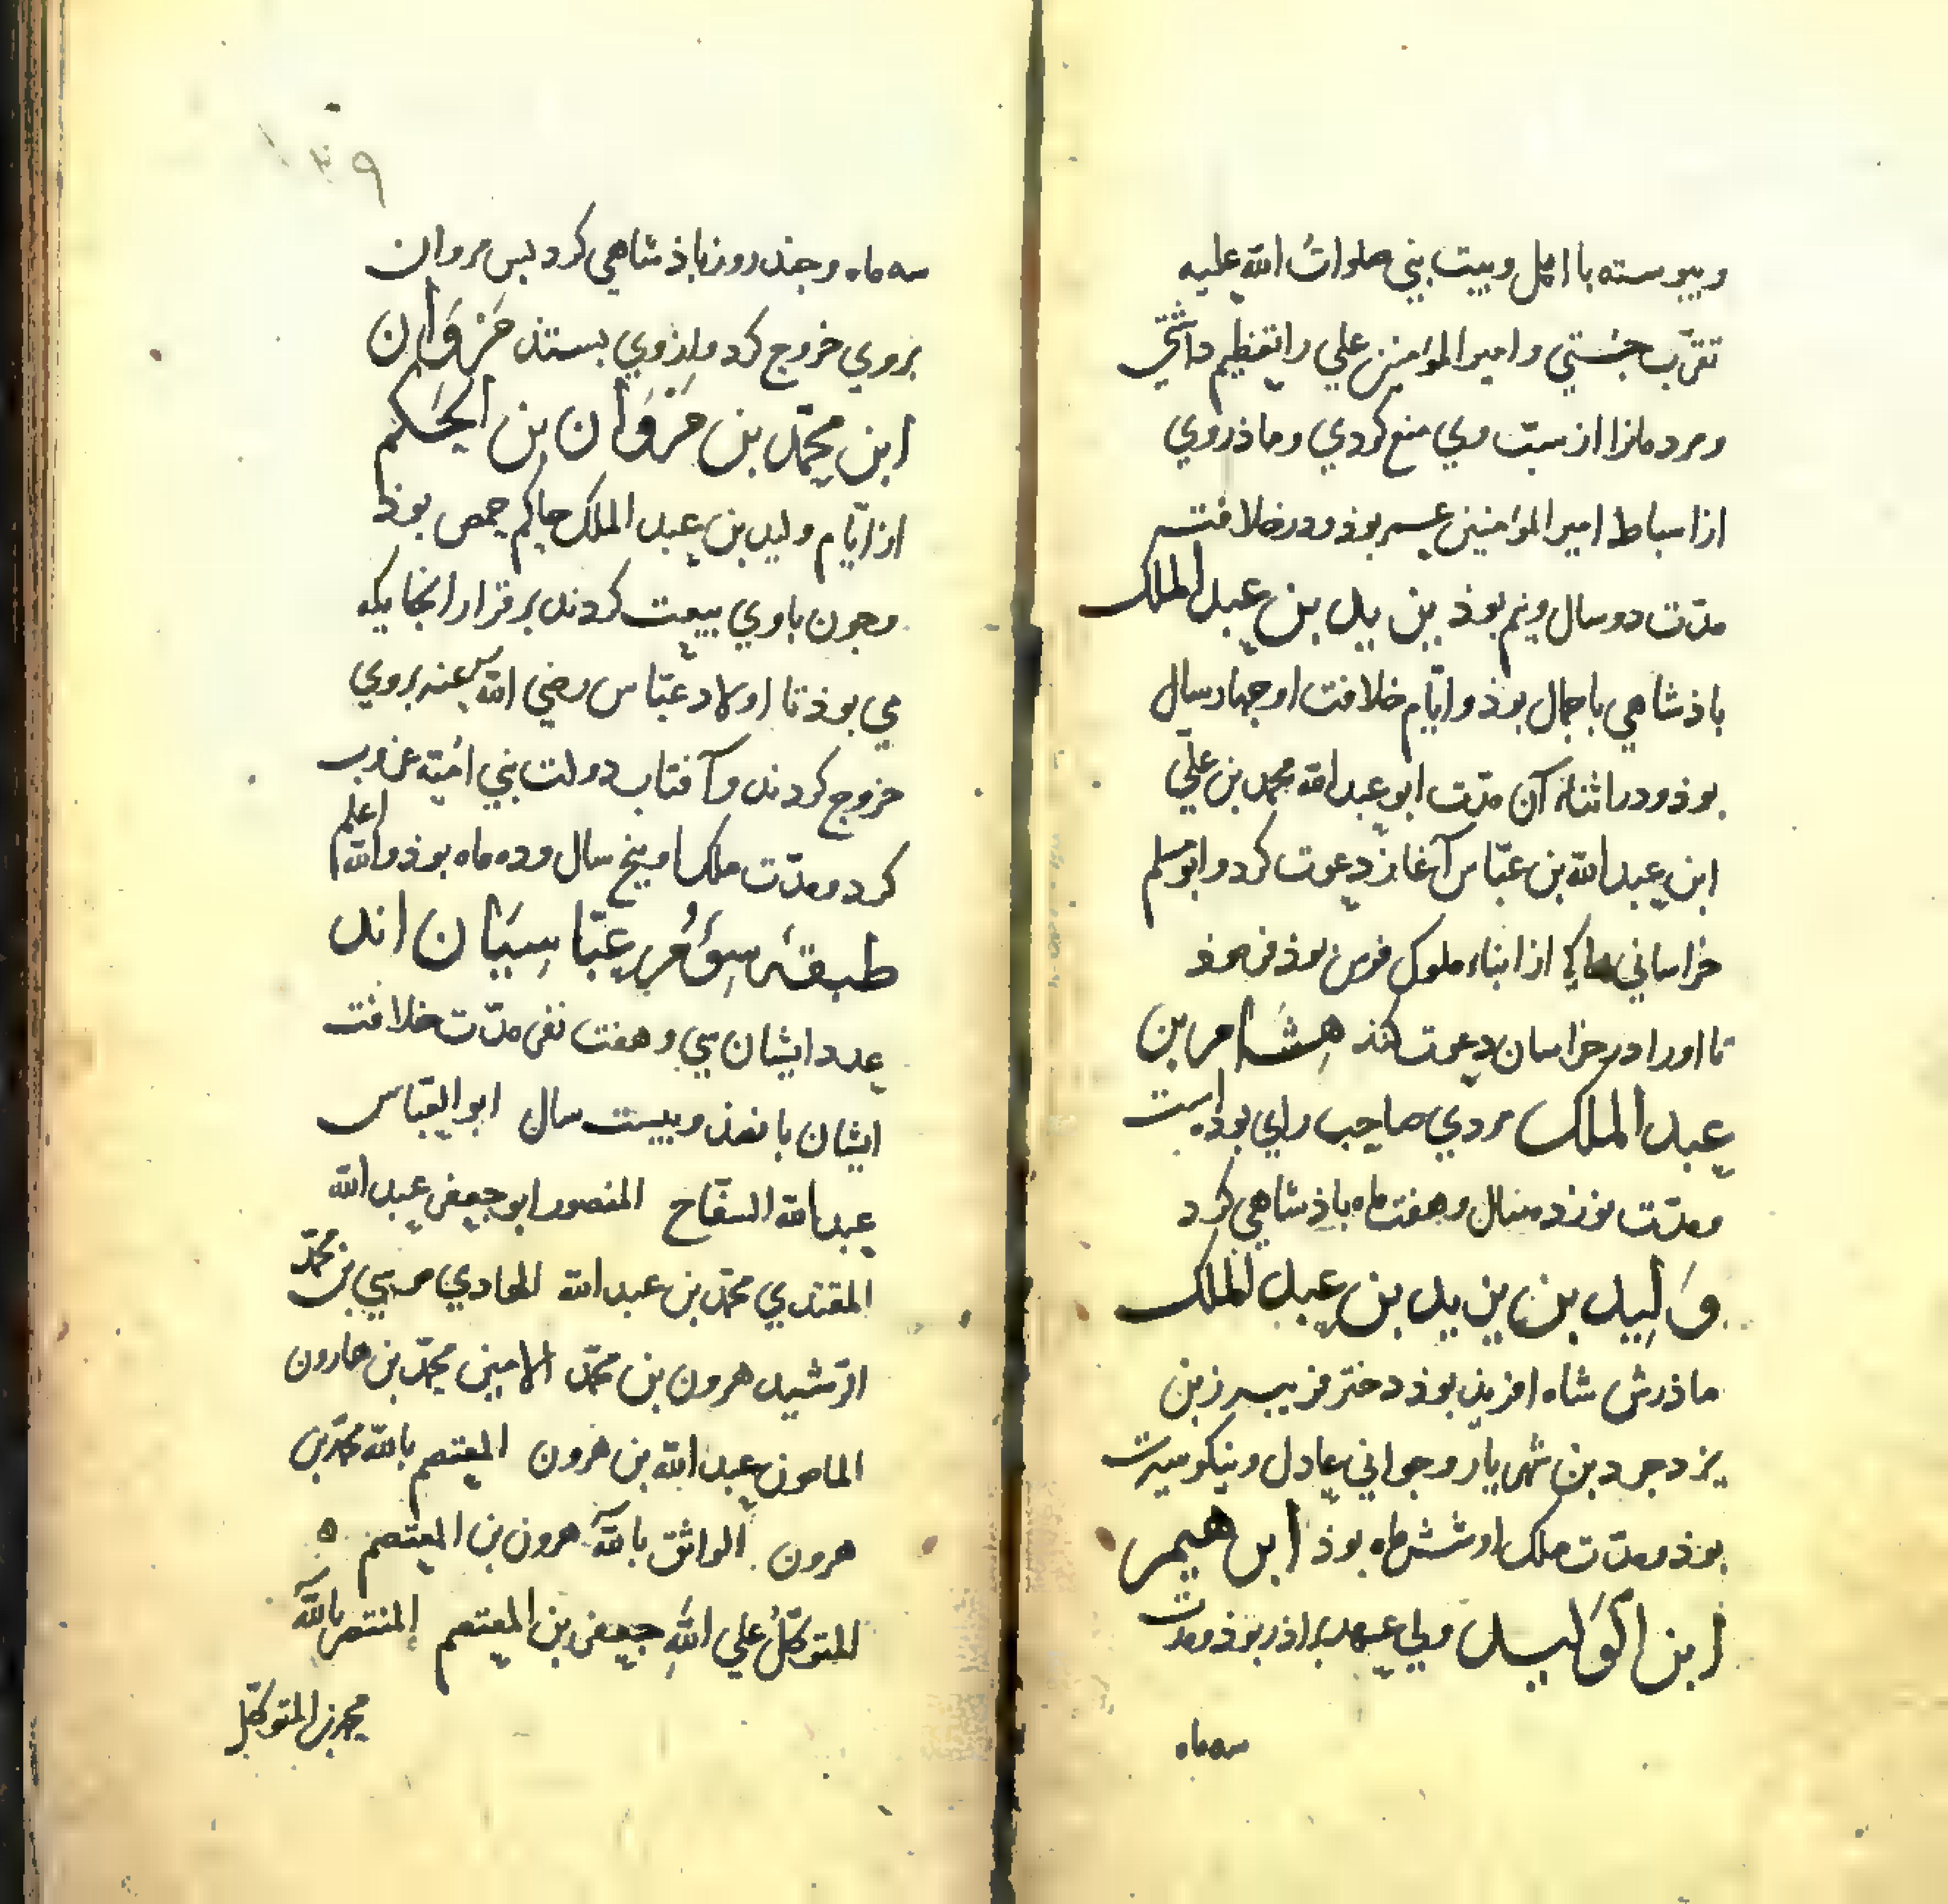 وبیوسته با اهل وبیت نبی صلوات الله علیه
تقرّب جستی وامیر المؤمنین علی را تعظیم داشتی
ومردمانرا از سبّت وی منع کردی وماذر وی
از اسباط امیر المؤمنین عمر بوذ ودر خلافت
مدّت دو سال ونیم بوذ یزید بن عبد الملک
باذشاهی با جمال بوذ وایّام خلافت او جهار سال
بوذ ودر اثناء آن مدّت ابو عبد الله محمد بن علی
ابن عبد الله بن عبّاس آغاز دعوت کرد وابو مسلم
خراسانی را که از ابناء ملوک فرس بوذ فرموذ
تا اورا در خراسان دعوت کند هِشَام بن
عبد الملک مردی صاحب رای بوذه است
ومدّت نوزده سال وهفت ماه باذشاهی کرد
وَلِید بن یزید بن عبد الملک
ماذرش شاه افرید بوذ دختر فیروز بن
یزدجرد بن شهریار وجوانی عادل ونیکو سیرت
بوذ ومدّت ملک او شش ماه بوذ ابرهیم
ابن الوَلید ولی عهد براذر بوذ ومدت
سه ماه
۱۳۹
سه ماه وجند روز باذشاهی کرد بس مروان
بروی خروج کرد واز وی بستذ مَرْوَان
ابن محمّد بن مَرْوَان بن الحَکم
از ایّام ولید بن عبد الملک حاکم حمص بوذ
وجون با وی بیعت کردند بر قرار انجایکه
می بوذ تا اولاد عبّاس رضی الله عنه بروی
خروج کردند وآفتاب دولت بنی امیّه غروب
کرد ومدّت ملک او بنج سال وده ماه بوذ والله اعلم
طبقهٔ سِوُم عبّاسِیَان اند
عدد ایشان سی وهفت نفر مدّت خلافت
ایشان بانصذ وبیست سال ابو العبّاس
عبد الله السفّاح المنصور ابو جعفر عبد الله
المقتدی محمّد بن عبد الله الهادی موسی بن محمّد
الرّشید هرون بن محمّد الامین محمّد بن هارون
المامون عبد الله بن هرون المعتصم بالله محمّد بن
هرون الواثق بالله هرون بن المعتصم ه
المتوکّلُ علی اللهِ جعفر بن المعتصم المنتصر بالله
محمد بن المتوکّل